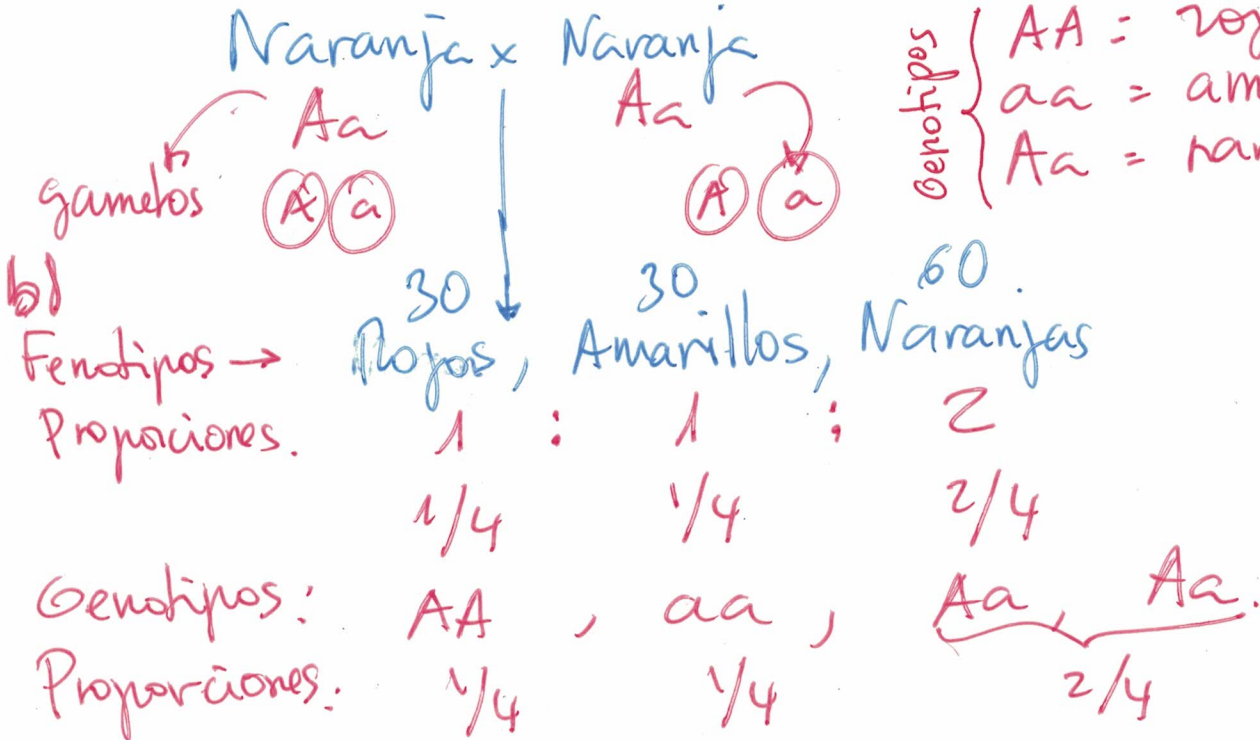 Naranja x Naranja
Aa Aa
gametos A a A a
Genotipos
AA =
aa =
Aa =
b)
30 30 60.
Fenotipos → Rojos, Amarillos, Naranjas
Proporciones. 1 : 1 : 2
1/4 1/4 2/4
Genotipos: AA, aa, Aa, Aa.
Proporciones. 1/4 1/4 2/4